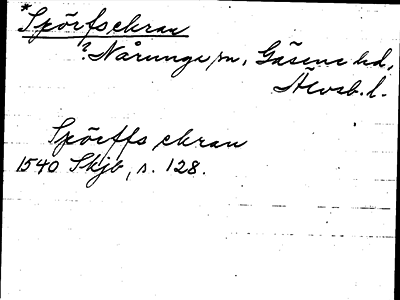 *Spörfsekran
? Nårunga sn, Gäsene hd,
Älvsb. l.
Spörffs ekran
1540 Skjb, s. 128.